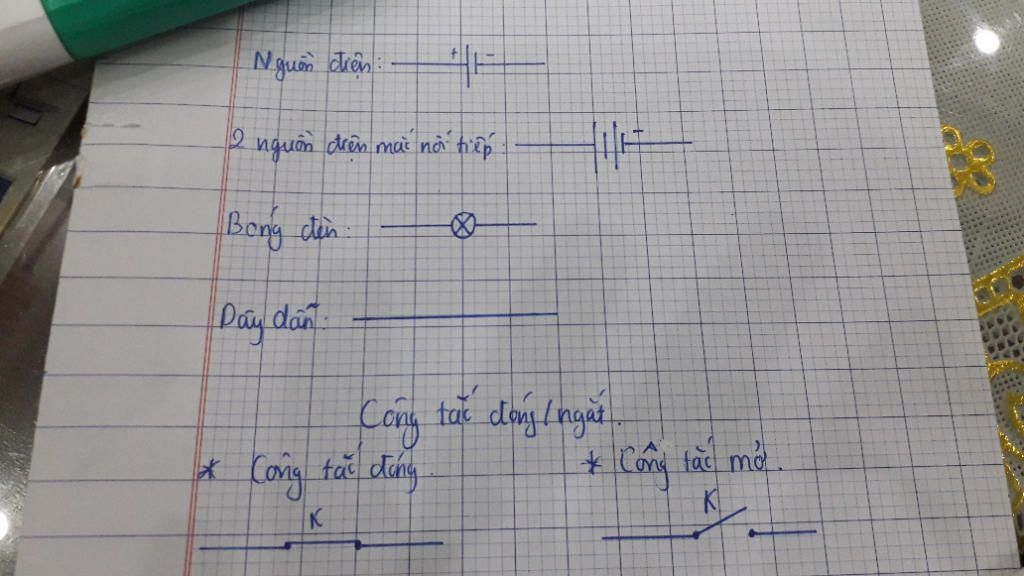 Nguồn điện: + -
2 nguồn điện mắc nối tiếp: -
Bóng đèn:
Dây dẫn:
Công tắc đóng/ngắt.
* Công tắc đóng.
* Công tắc mở.
K
K